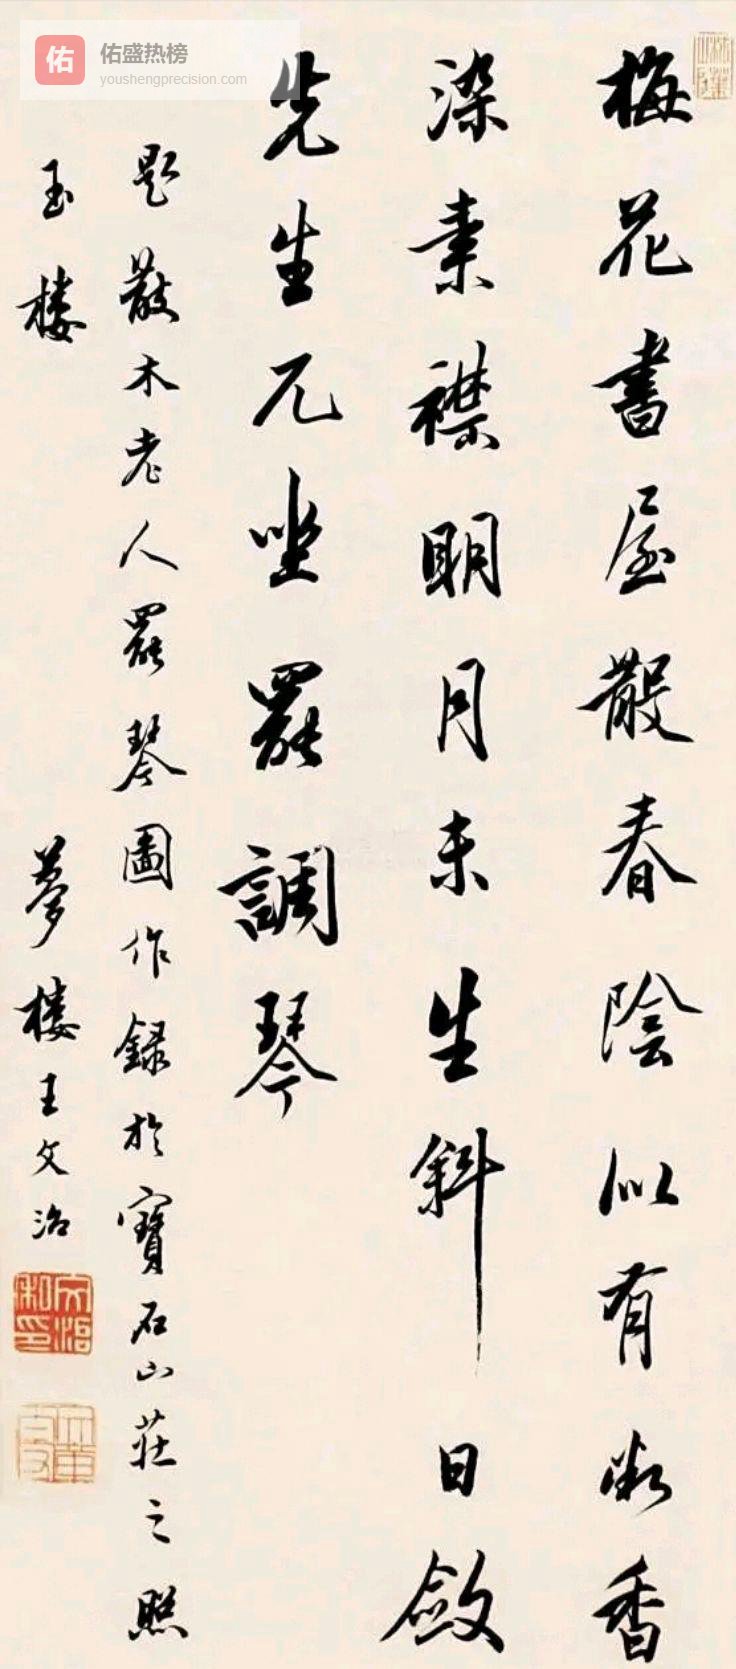 佑
佑盛热榜
youshengprecision.com
梅花書屋散春陰似有微香
染素襟明月未生斜日斂
先生兀坐罷調琴
題散木老人罷琴圖作錄於寶石山莊之照
玉樓
夢樓王文治